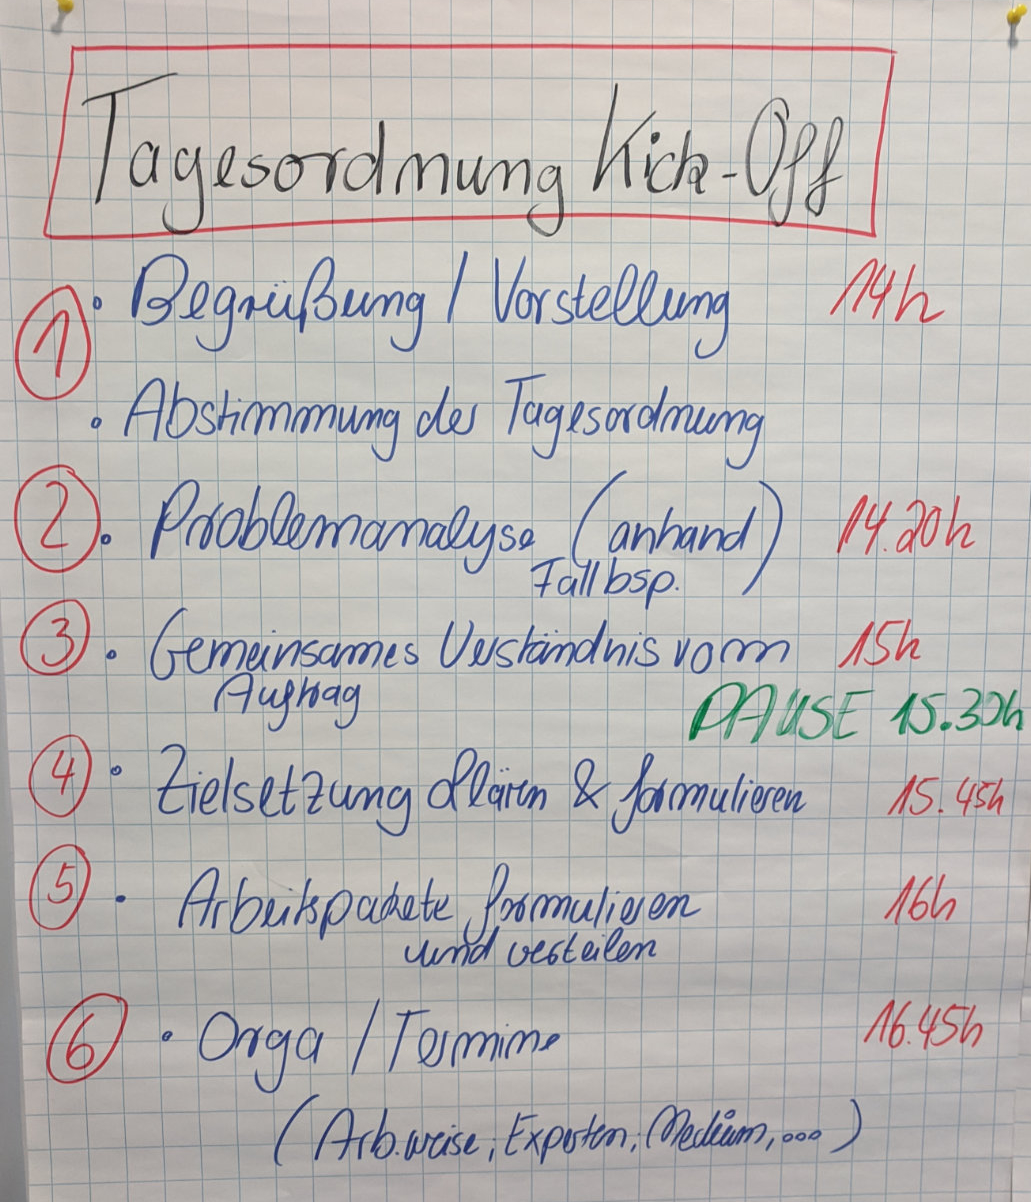 Tagesordnung Kick-Off
1 • Begrüßung / Vorstellung 14h
• Abstimmung der Tagesordnung
2 • Problemanalyse (anhand) 14.20h
Fallbsp.
3 • Gemeinsames Verständnis vom 15h
Auftrag
PAUSE 15.30h
4 • Zielsetzung klären & formulieren 15.45h
5 • Arbeitspakete formulieren 16h
und verteilen
6 • Orga / Termine 16.45h
(Arb.weise, Experten, Medium, ...)